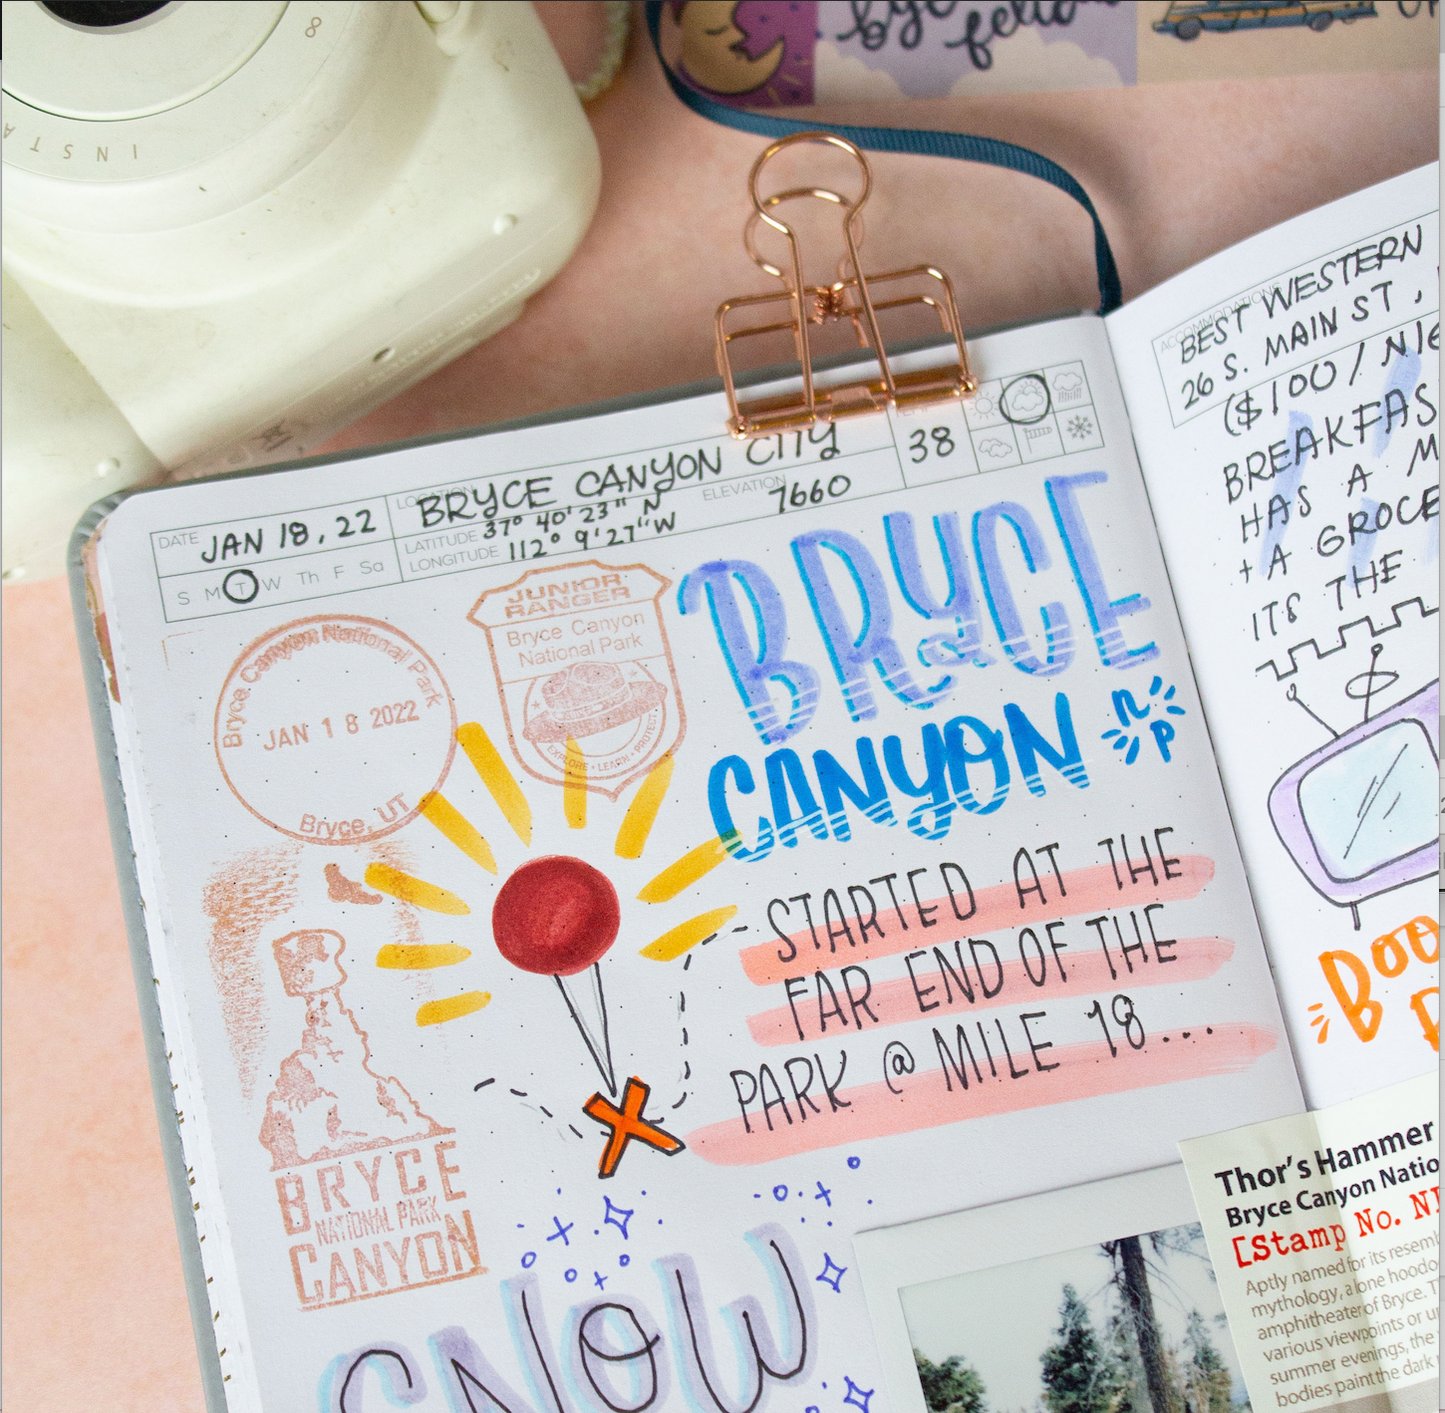 8
INSTA
bye
felicia
DATE JAN 18, 22
S M T W Th F Sa
LOCATION BRYCE CANYON CITY
LATITUDE 37° 40' 23" N
LONGITUDE 112° 9' 27" W
ELEVATION 7660
38
Bryce Canyon National Park
JAN 18 2022
Bryce, UT
JUNIOR
RANGER
Bryce Canyon
National Park
EXPLORE • LEARN • PROTECT
BRYCE
CANYON
NP
STARTED AT THE
FAR END OF THE
PARK @ MILE 18...
BRYCE
NATIONAL PARK
CANYON
SNOW
ACCOMMODATIONS
BEST WESTERN
26 S. MAIN ST,
($100 / NIG
BREAKFAS
HAS A M
+ A GROCE
ITS THE
BOO
Thor's Hammer
Bryce Canyon Natio
[Stamp No. N
Aptly named for its resemb
mythology, a lone hoodo
amphitheater of Bryce. T
various viewpoints or u
summer evenings, the
bodies paint the dark